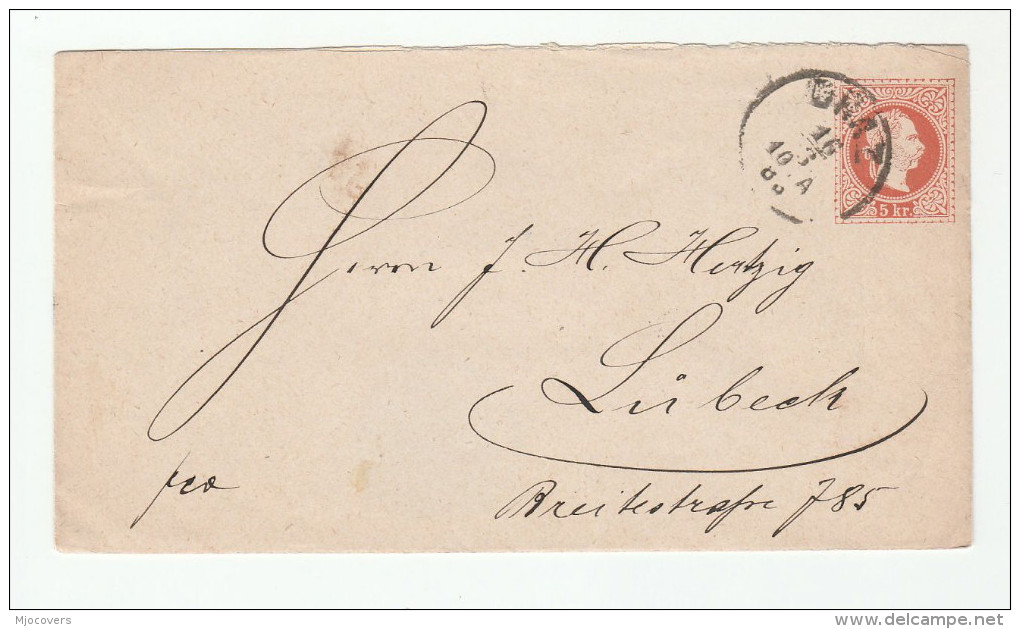 GRAZ
16
3
10 A
5 kr.
Herrn J. H. Hertzig
Lübeck
fco
Breitestraße 785
Mjocovers
delcampe.net